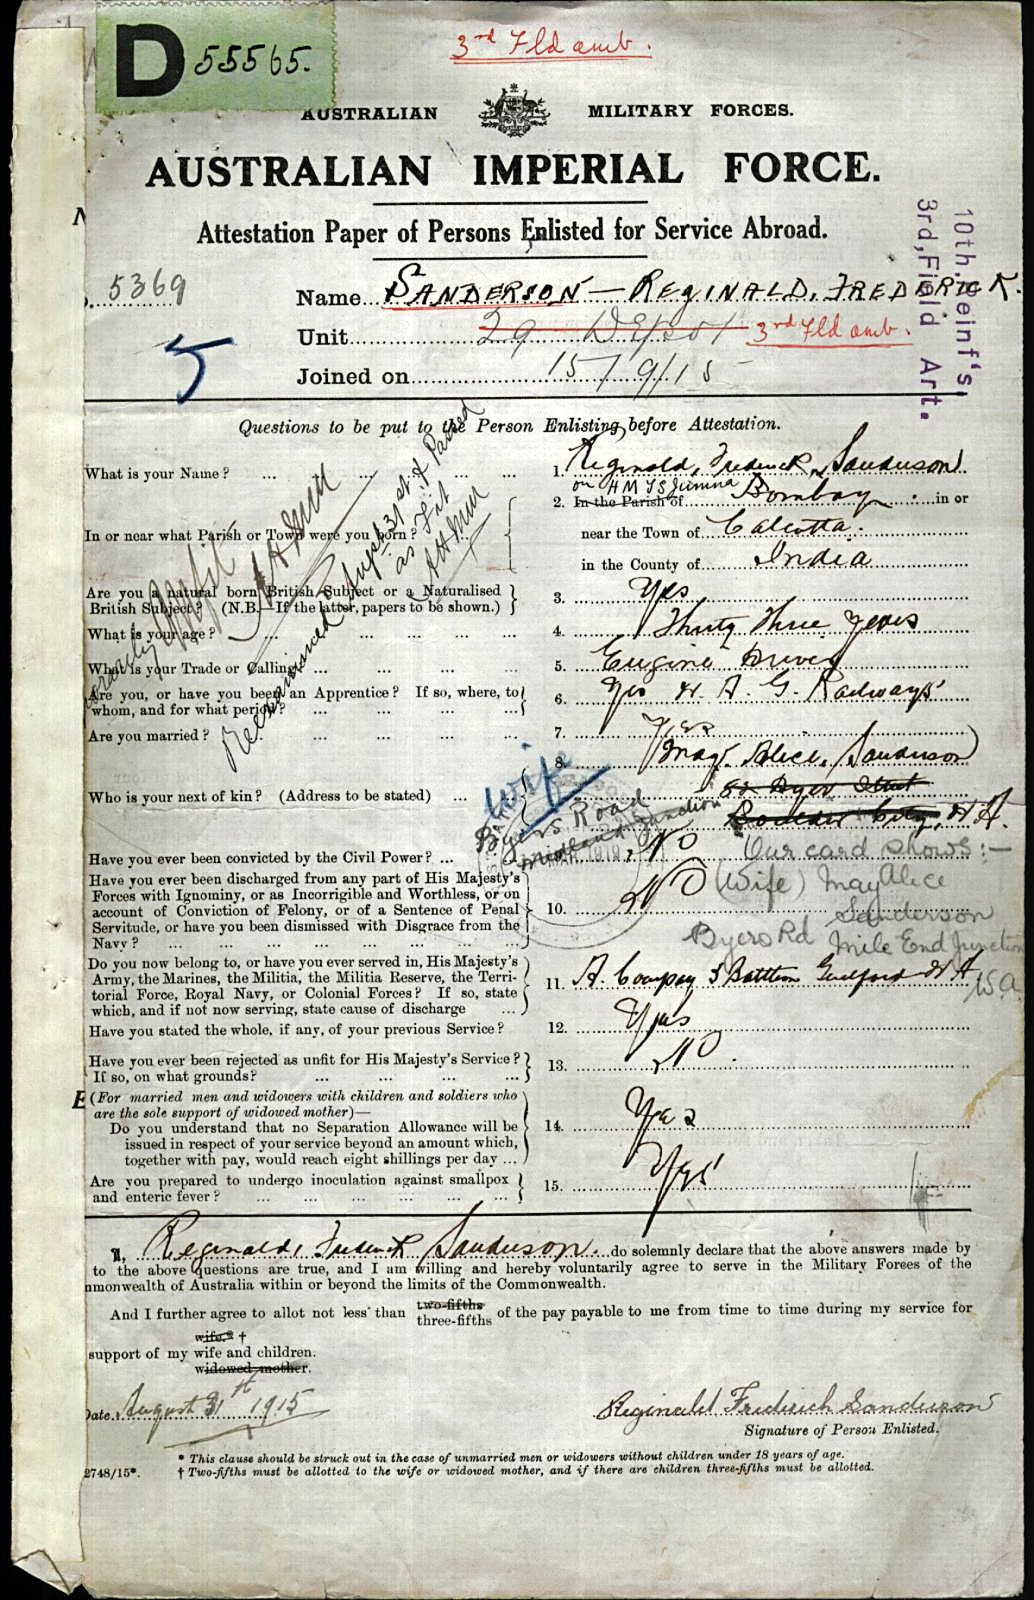 D 55565.
3rd Fld amb.
AUSTRALIAN MILITARY FORCES.
AUSTRALIAN IMPERIAL FORCE.
Attestation Paper of Persons Enlisted for Service Abroad.
10th. Reinf's,
3rd, Field Art.
5369
Name SANDERSON — REGINALD, FREDERICK.
Unit 29 Depot 3rd Fld amb.
Joined on 15/9/15
5
Questions to be put to the Person Enlisting before Attestation.
What is your Name? ... 1. Reginald, Frederick Sanderson
on H M T S Jumna
In or near what Parish or Town were you born? ... 2. In the Parish of Bombay in or
near the Town of Calcutta.
in the County of India
Are you a natural born British Subject or a Naturalised
British Subject? (N.B.—If the latter, papers to be shown.) 3. Yes
What is your age? ... 4. Thirty Three years
What is your Trade or Calling? ... 5. Engine Driver
Are you, or have you been an Apprentice? If so, where, to
whom, and for what period? ... 6. Yes W. A. G. Railways
Are you married? ... 7. Yes
Reexamined August 31st & Passed
as Fit
Who is your next of kin? (Address to be stated) ... 8. May Alice, Sanderson
wife
Street
Boulder City, W A.
Byers Road
Midland Junction
Have you ever been convicted by the Civil Power? ... 9. NO
Our card shows:—
(Wife) May Alice
Sanderson
Byers Rd Mile End Junction
W.A.
Have you ever been discharged from any part of His Majesty's
Forces with Ignominy, or as Incorrigible and Worthless, or on
account of Conviction of Felony, or of a Sentence of Penal
Servitude, or have you been dismissed with Disgrace from the
Navy? ... 10. NO
Do you now belong to, or have you ever served in, His Majesty's
Army, the Marines, the Militia, the Militia Reserve, the Terri-
torial Force, Royal Navy, or Colonial Forces? If so, state
which, and if not now serving, state cause of discharge ... 11. A Compay 5 Battlion Guilford W A
Have you stated the whole, if any, of your previous Service? 12. Yes
Have you ever been rejected as unfit for His Majesty's Service?
If so, on what grounds? ... 13. NO.
(For married men and widowers with children and soldiers who
are the sole support of widowed mother)—
Do you understand that no Separation Allowance will be
issued in respect of your service beyond an amount which,
together with pay, would reach eight shillings per day ... 14. Yes
Are you prepared to undergo inoculation against smallpox
and enteric fever? ... 15. Yes
I, Reginald, Frederick Sanderson. do solemnly declare that the above answers made by
to the above questions are true, and I am willing and hereby voluntarily agree to serve in the Military Forces of the
mmonwealth of Australia within or beyond the limits of the Commonwealth.
And I further agree to allot not less than two-fifths three-fifths of the pay payable to me from time to time during my service for
wife.* †
support of my wife and children.
widowed mother.
Date August 31st 1915
Reginald Frederick Sanderson
Signature of Person Enlisted.
* This clause should be struck out in the case of unmarried men or widowers without children under 18 years of age.
2748/15*. † Two-fifths must be allotted to the wife or widowed mother, and if there are children three-fifths must be allotted.